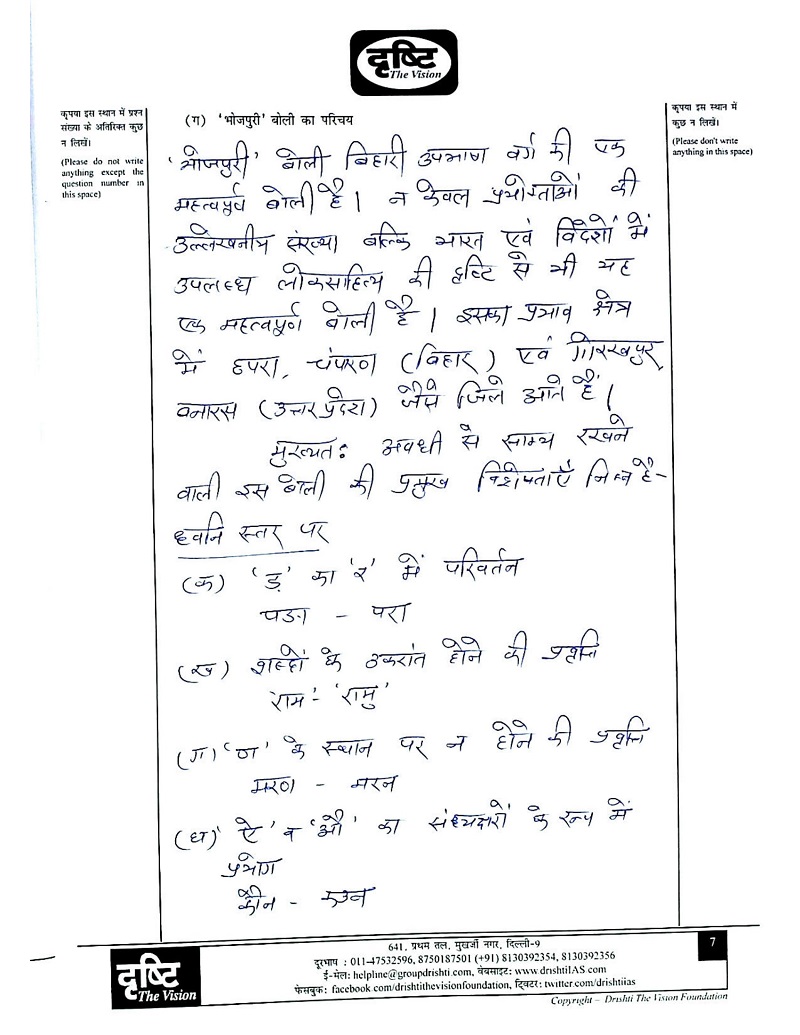 दृष्टि
The Vision
कृपया इस स्थान में प्रश्न
संख्या के अतिरिक्त कुछ
न लिखें।
(Please do not write
anything except the
question number in
this space)
(ग) 'भोजपुरी' बोली का परिचय
'भोजपुरी' बोली बिहारी उपभाषा वर्ग की एक
महत्वपूर्ण बोली है। न केवल प्रयोक्ताओं की
उल्लेखनीय संख्या बल्कि भारत एवं विदेशों में
उपलब्ध लोकसाहित्य की दृष्टि से भी यह
एक महत्वपूर्ण बोली है। इसका प्रभाव क्षेत्र
में छपरा, चंपारण (बिहार) एवं गोरखपुर,
वनारस (उत्तर प्रदेश) जैसे जिले आते हैं।
मुख्यतः अवधी से साम्य रखने
वाली इस बोली की प्रमुख विशेषताएँ निम्न है-
ध्वनि स्तर पर
(क) 'ड़' का 'र' में परिवर्तन
पड़ा - परा
(ख) शब्दों के उकरांत होने की प्रवृत्ति
'राम' - 'रामु'
(ग) 'ण' के स्थान पर न होने की प्रवृत्ति
मरण - मरन
(घ) 'ऐ' व 'औ' का संध्यक्षरों के रूप में
प्रयोग
कौन - कउन
कृपया इस स्थान में
कुछ न लिखें।
(Please don't write
anything in this space)
दृष्टि
The Vision
641, प्रथम तल, मुखर्जी नगर, दिल्ली-9
दूरभाष : 011-47532596, 8750187501 (+91) 8130392354, 8130392356
ई-मेल: helpline@groupdrishti.com, वेबसाइट: www.drishtiIAS.com
फेसबुक: facebook.com/drishtithevisionfoundation, ट्विटर: twitter.com/drishtiias
7
Copyright – Drishti The Vision Foundation